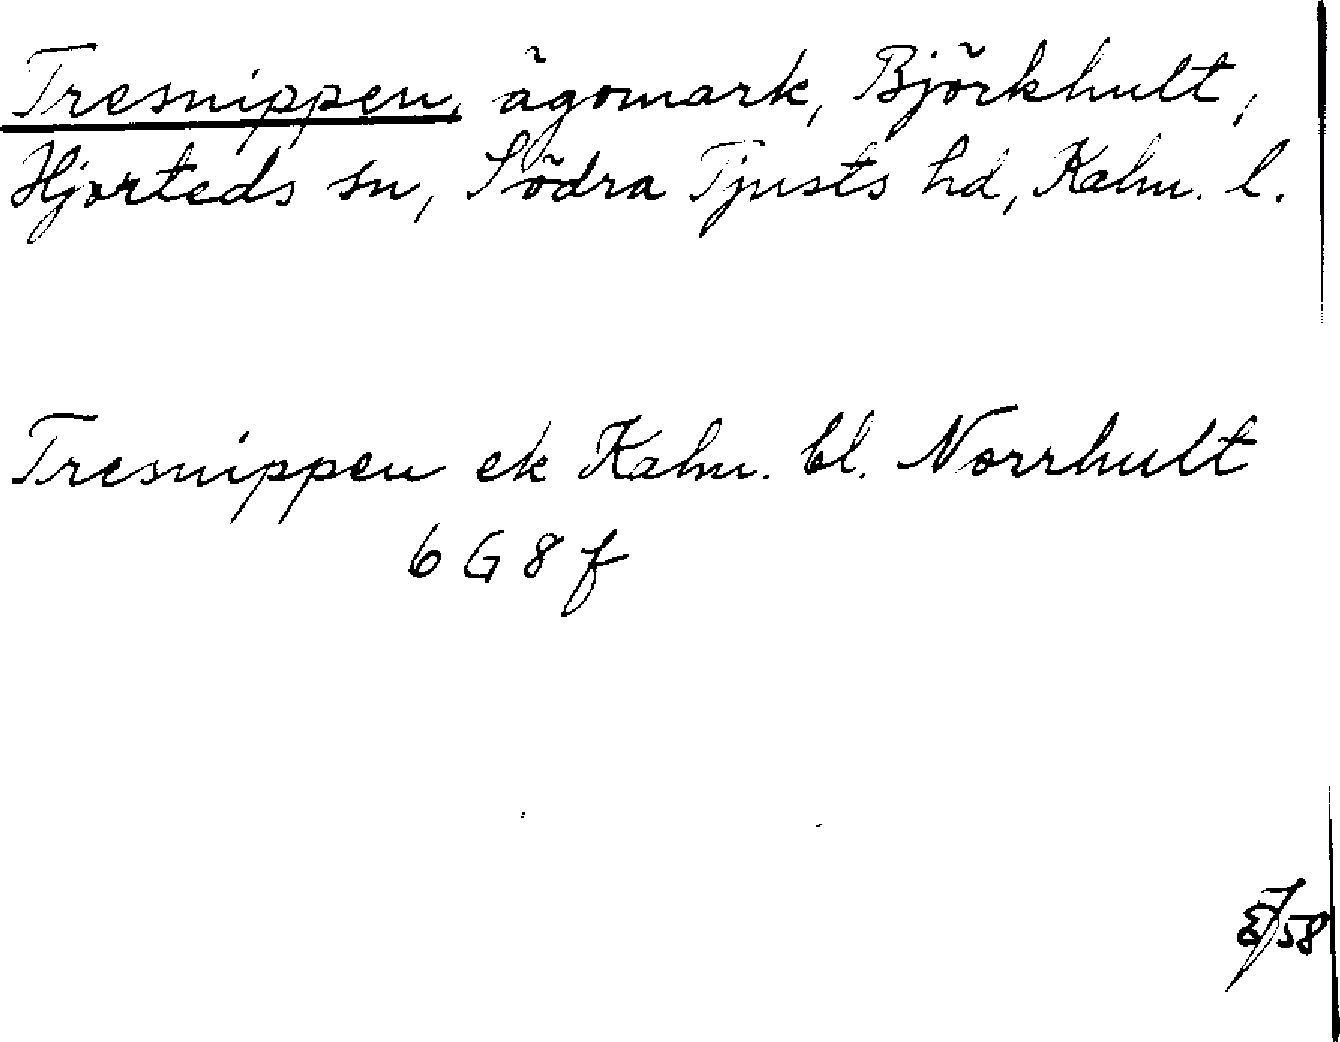 Tresnippen, ägomark, Björkhult,
Hjorteds sn, Södra Tjusts hd, Kalm. l.
Tresnippen ek Kalm. bl. Norrhult
6 G 8 f
58